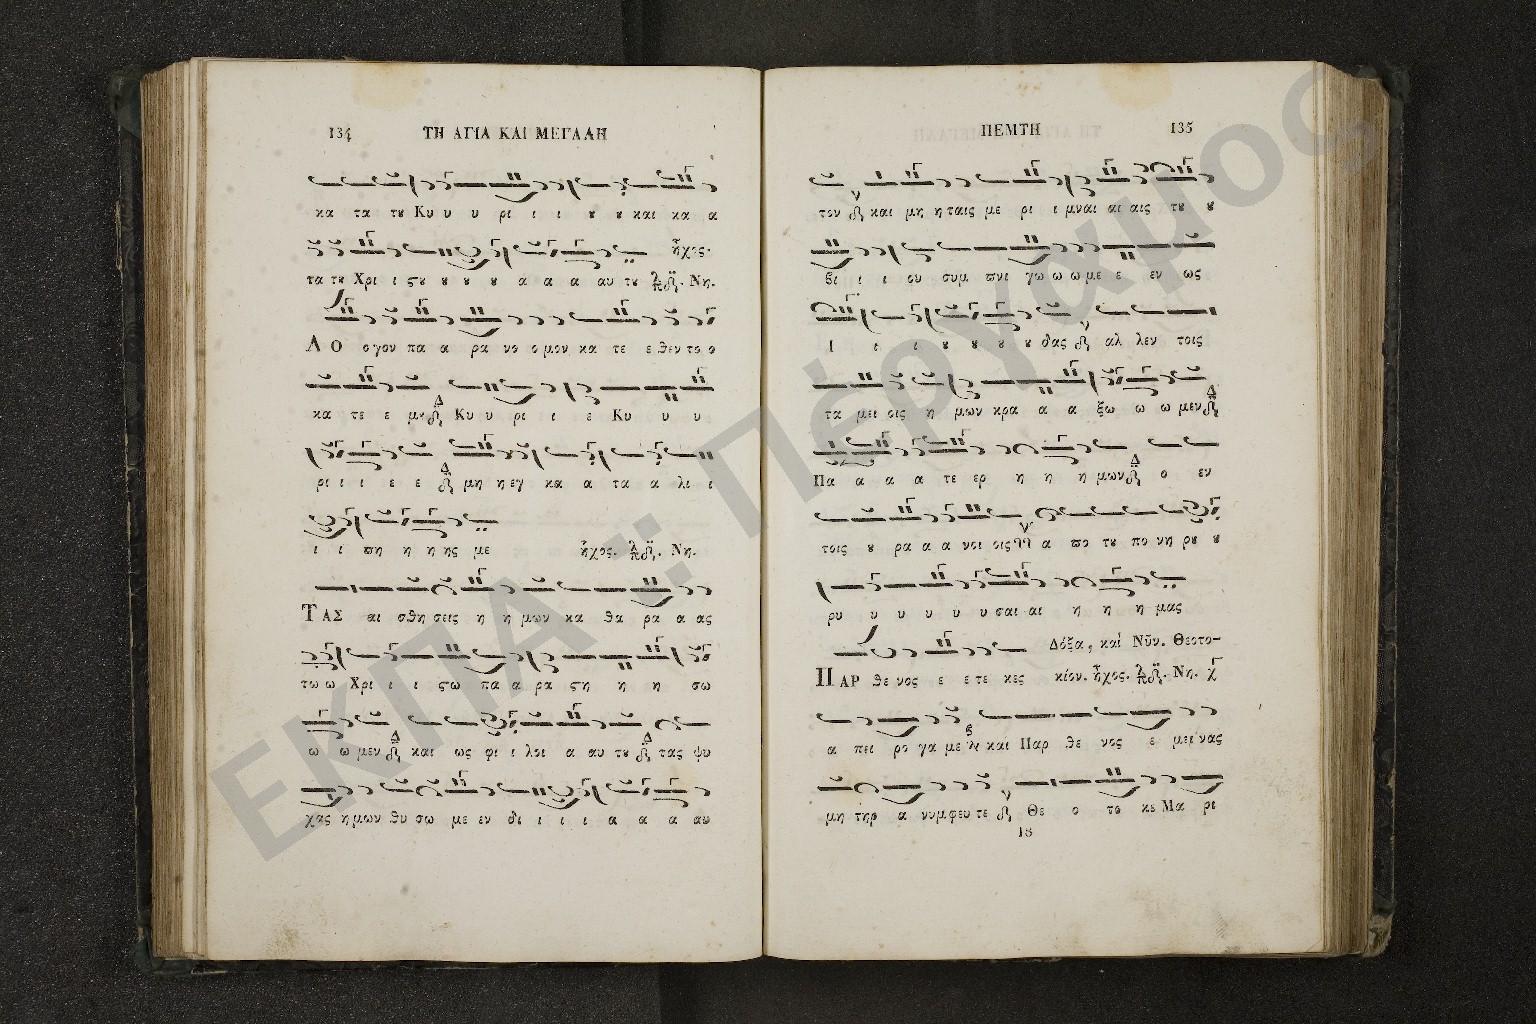 134 ΤΗ ΑΓΙΑ ΚΑΙ ΜΕΓΑΛΗ
κα τα τȣ Κυ υ υ ρι ι ι ȣ ȣ και κα α
τα τȣ Χρι ι ςȣ ȣ ȣ ȣ α α α αυ τȣ Νη.
ἦχος.
ΛΟ ογον πα α ρα νο ο μον κα τε ε θεν το ο
κα τε ε μȣ Κυ υ ρι ι ε Κυ υ υ
ρι ι ι ε ε μη η εγ κα α τα α λι ι
ι ι πη η η ης με ἦχος. Νη.
ΤΑΣ αι σθη σεις η η μων κα θα ρα α ας
τω ω Χρι ι ι ςω πα α ρα ςη η η σω
ω ω μεν και ως φι ι λοι α αυ τȣ τας ψυ
χας η μων θυ σω με εν δι ι ι ι α α α αυ
ΠΕΜΤΗ 135
τον και μη η ταις με ρι ι μναι αι αις τȣ ȣ
βι ι ι ου συμ πνι γω ω ω με ε εν ως
Ι ι ι ȣ ȣ ȣ ȣ δας αλ λεν τοις
τα μει οις η μων κρα α α ξω ω ω μεν
Πα α α α τε ερ η η η μων ο εν
τοις ȣ ρα α α νοι οις α πο τȣ πο νη ρȣ ȣ
ρυ υ υ υ υ υ σαι αι η η η μας
Δόξα, καὶ Νῦν. Θεοτο-
ΠΑΡ θε νος ε ε τε κες κίον. ἦχος. Νη.
α πει ρο γα με και Παρ θε νος ε μει νας
μη τηρ α νυμφευ τε Θε ο το κε Μα ρι
18
ΕΚΠΑ :: Πέργαμος